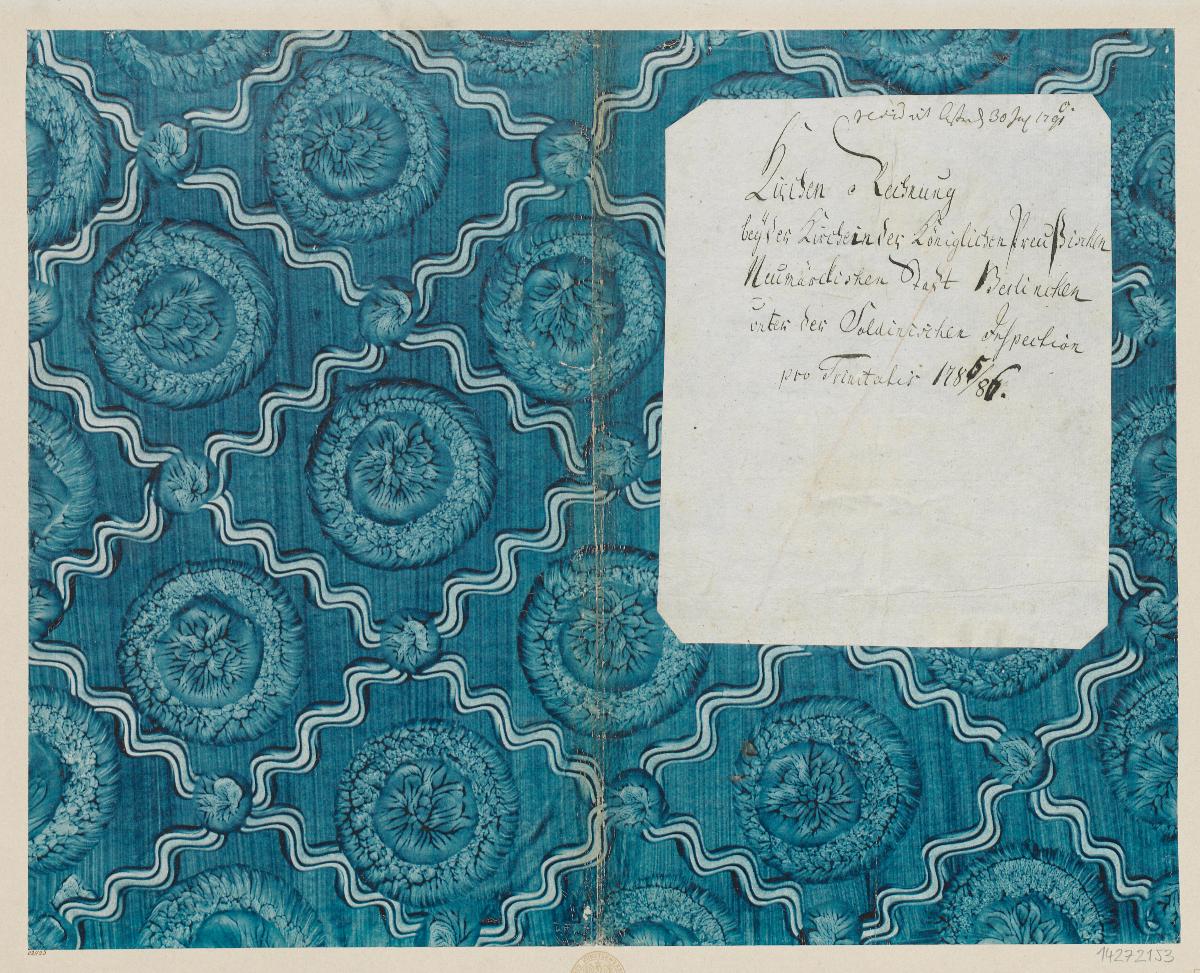 revidirt 30 1790.
Kirchen Rechnung
bey der Kirche in der Königlichen Preußischen
Neumärckischen Stadt Berlinchen
unter der Soldinischen Inspection
pro Trinitatis 1785/86.
14272153